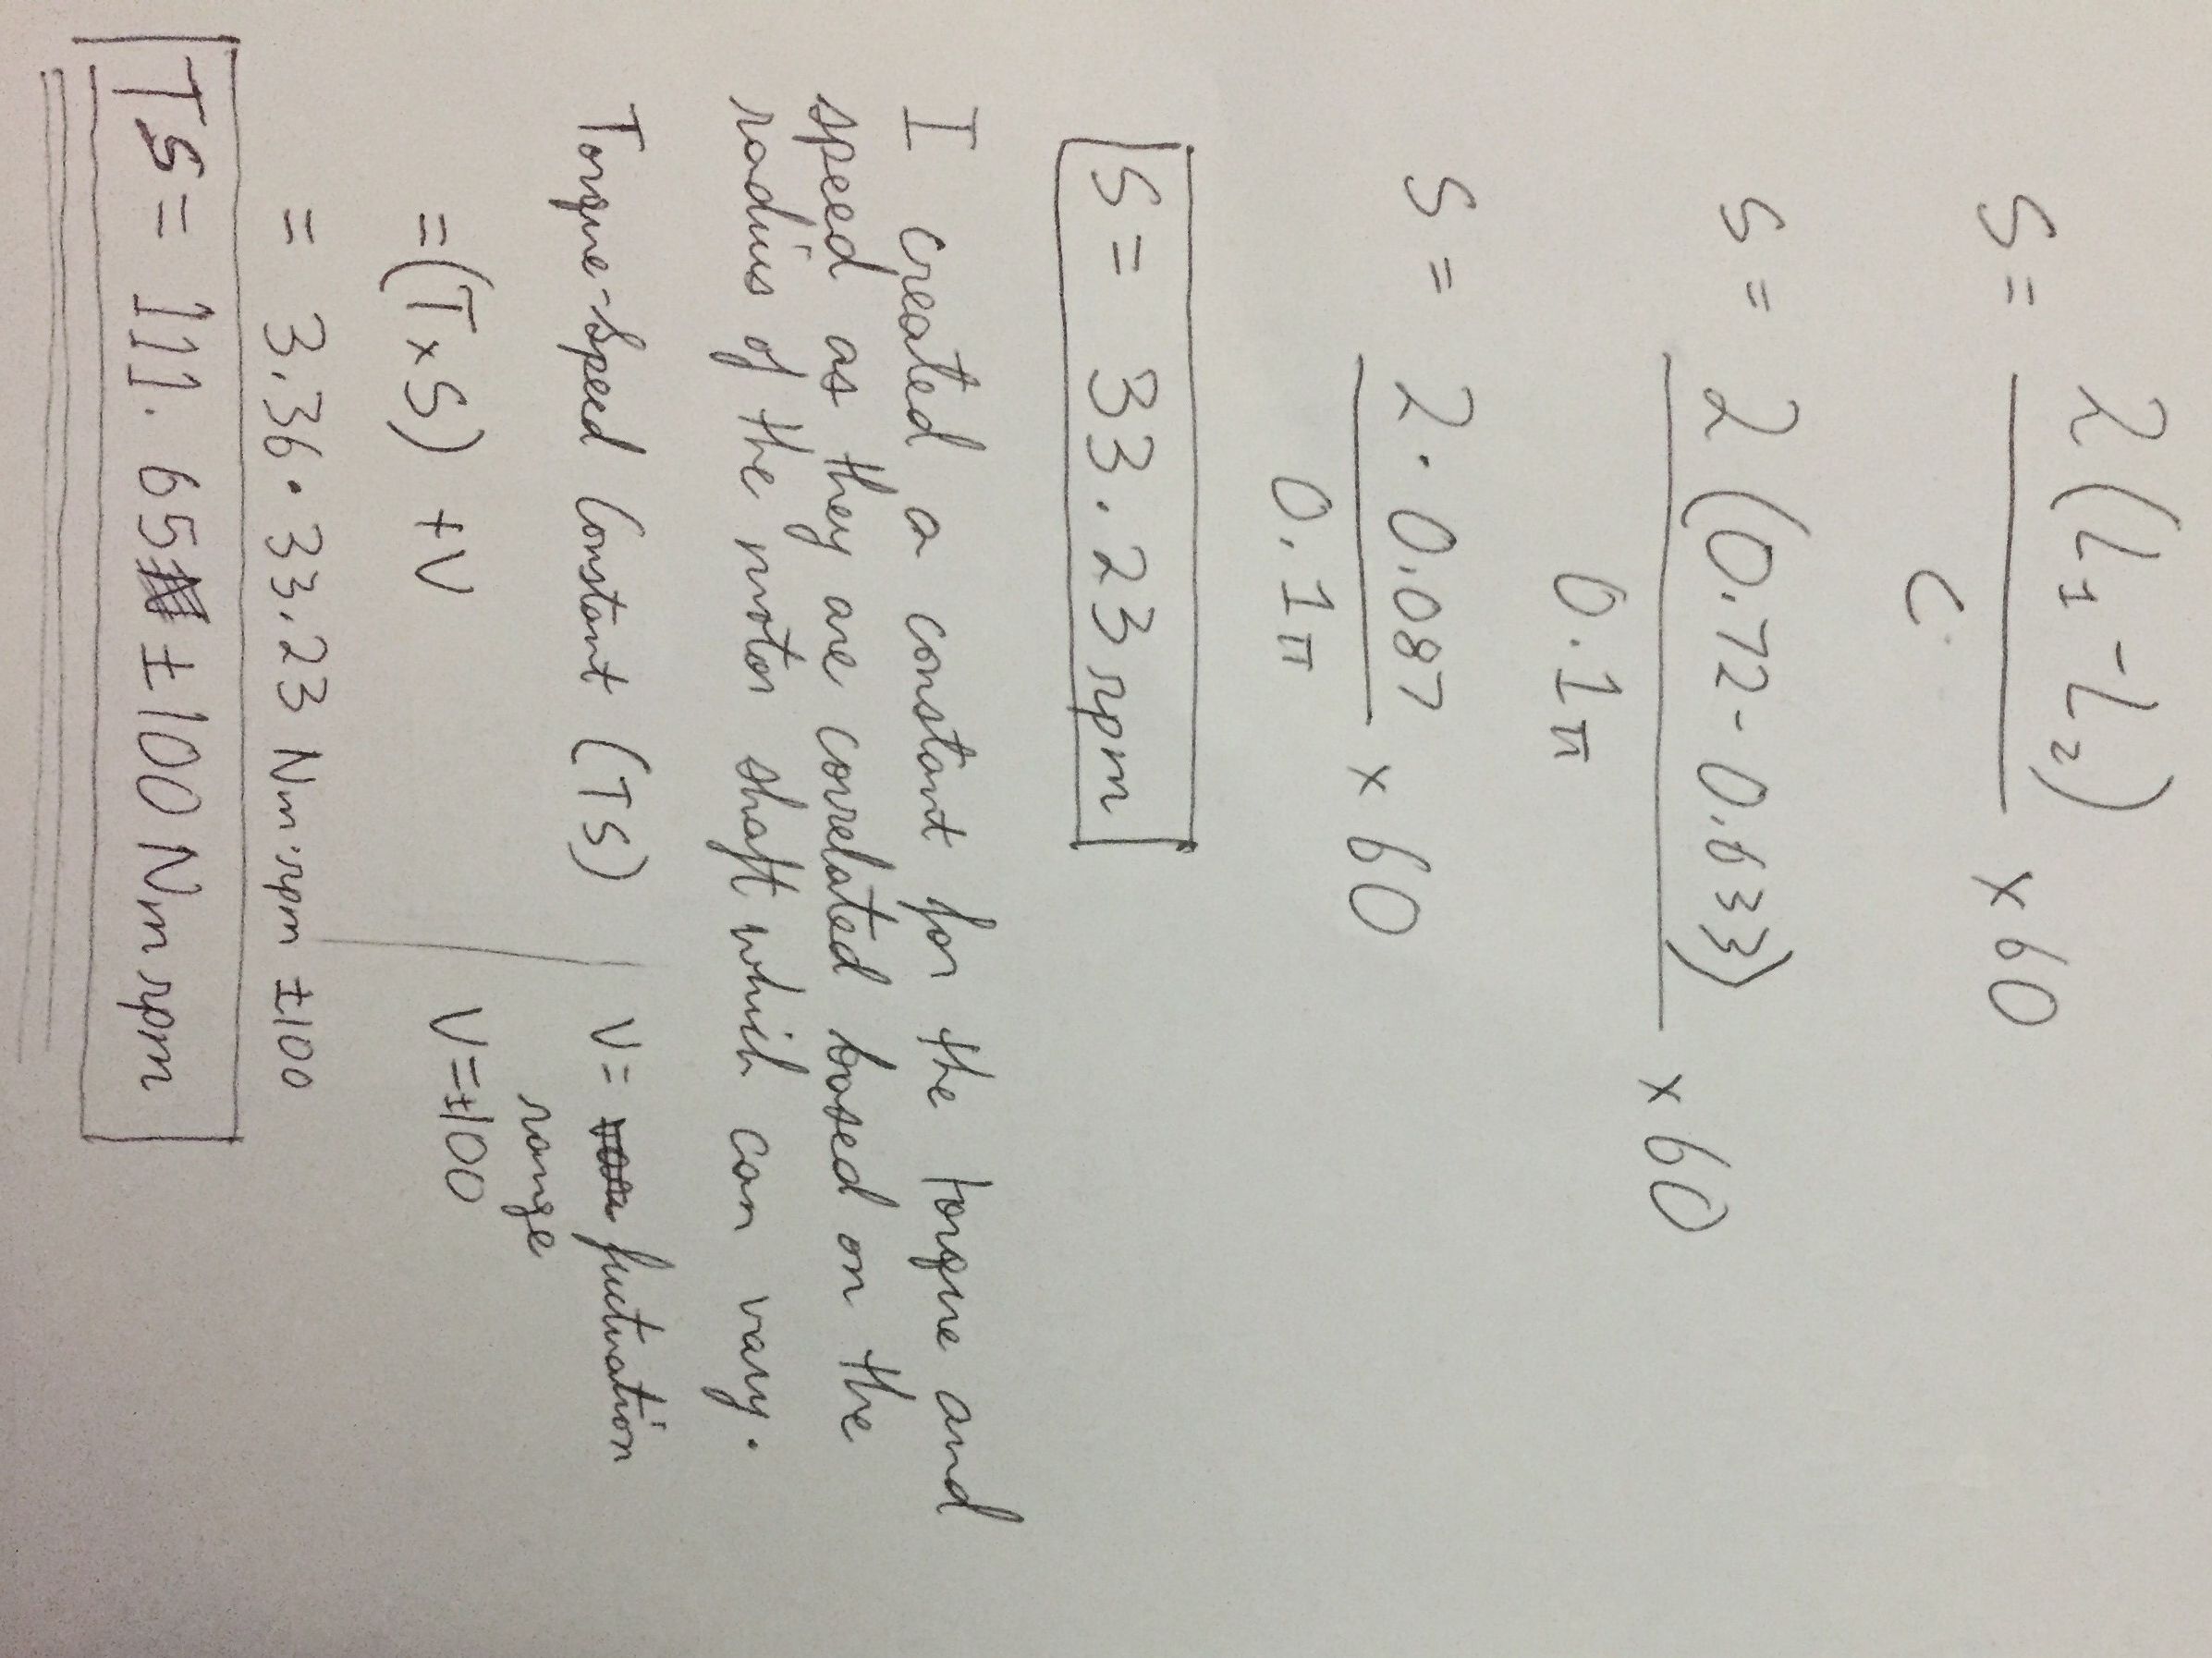 S = 2(L₁-L₂) × 60
C
S = 2(0.72-0.633) × 60
0.1π
S = 2·0.087 × 60
0.1π
S = 33.23 rpm
I created a constant for the torque and
speed as they are correlated based on the
radius of the motor shaft which can vary.
Torque-Speed Constant (TS)
= (T×S) + V
V = fluctuation
range
V=±100
= 3.36·33.23 Nm·rpm ±100
TS = 111.65 ±100 Nm rpm